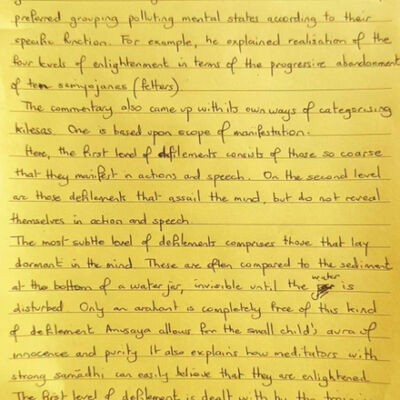 preferred grouping polluting mental states according to their
specific function. For example, he explained realisation of the
four levels of enlightenment in terms of the progressive abandonment
of ten samyojanas (fetters).
The commentary also came up with its own ways of categorising
kilesas. One is based upon scope of manifestation.
Here, the first level of defilements consists of those so coarse
that they manifest in actions and speech. On the second level
are those defilements that assail the mind, but do not reveal
themselves in action and speech.
The most subtle level of defilements comprises those that lay
dormant in the mind. These are often compared to the sediment
at the bottom of a water jar, invisible until the water is
disturbed. Only an arahant is completely free of this kind
of defilement. Anusaya allows for the small child's aura of
innocence and purity. It also explains how meditators with
strong samādhi can easily believe that they are enlightened.
The first level of defilement is dealt with by the